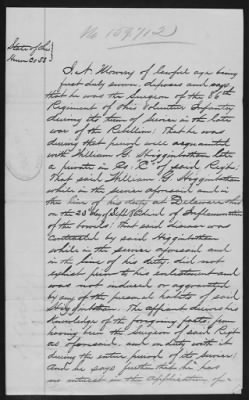 No 109,712
State of Ohio
Huron Co SS
J. N. Mowery of lawful age being
first duly sworn, deposes and says
that he was the Surgeon of the 86th
Regiment of Ohio Volunteer Infantry
during the term of service in the late
war of the Rebellion; That he was
during that period well acquainted
with William G. Higginbotham late
a private in Co. of said Regt.
That said William G. Higginbotham
while in the service aforesaid and in
the line of his duty at Delaware Ohio
on the 23 day of Sept died of Inflammation
of the bowels; that said disease was
contracted by said Higinbotham
while in the service aforesaid and
in the line of his duty, did not
exist prior to his enlistment and
was not induced or aggravated
by any of the personal habits of said
Higinbotham. The affiant derives his
knowledge of the foregoing facts from
having been the Surgeon of said Regt
as aforesaid, and on duty with it
during the entire period of its service;
And he says further that he has
no interest in the application of a